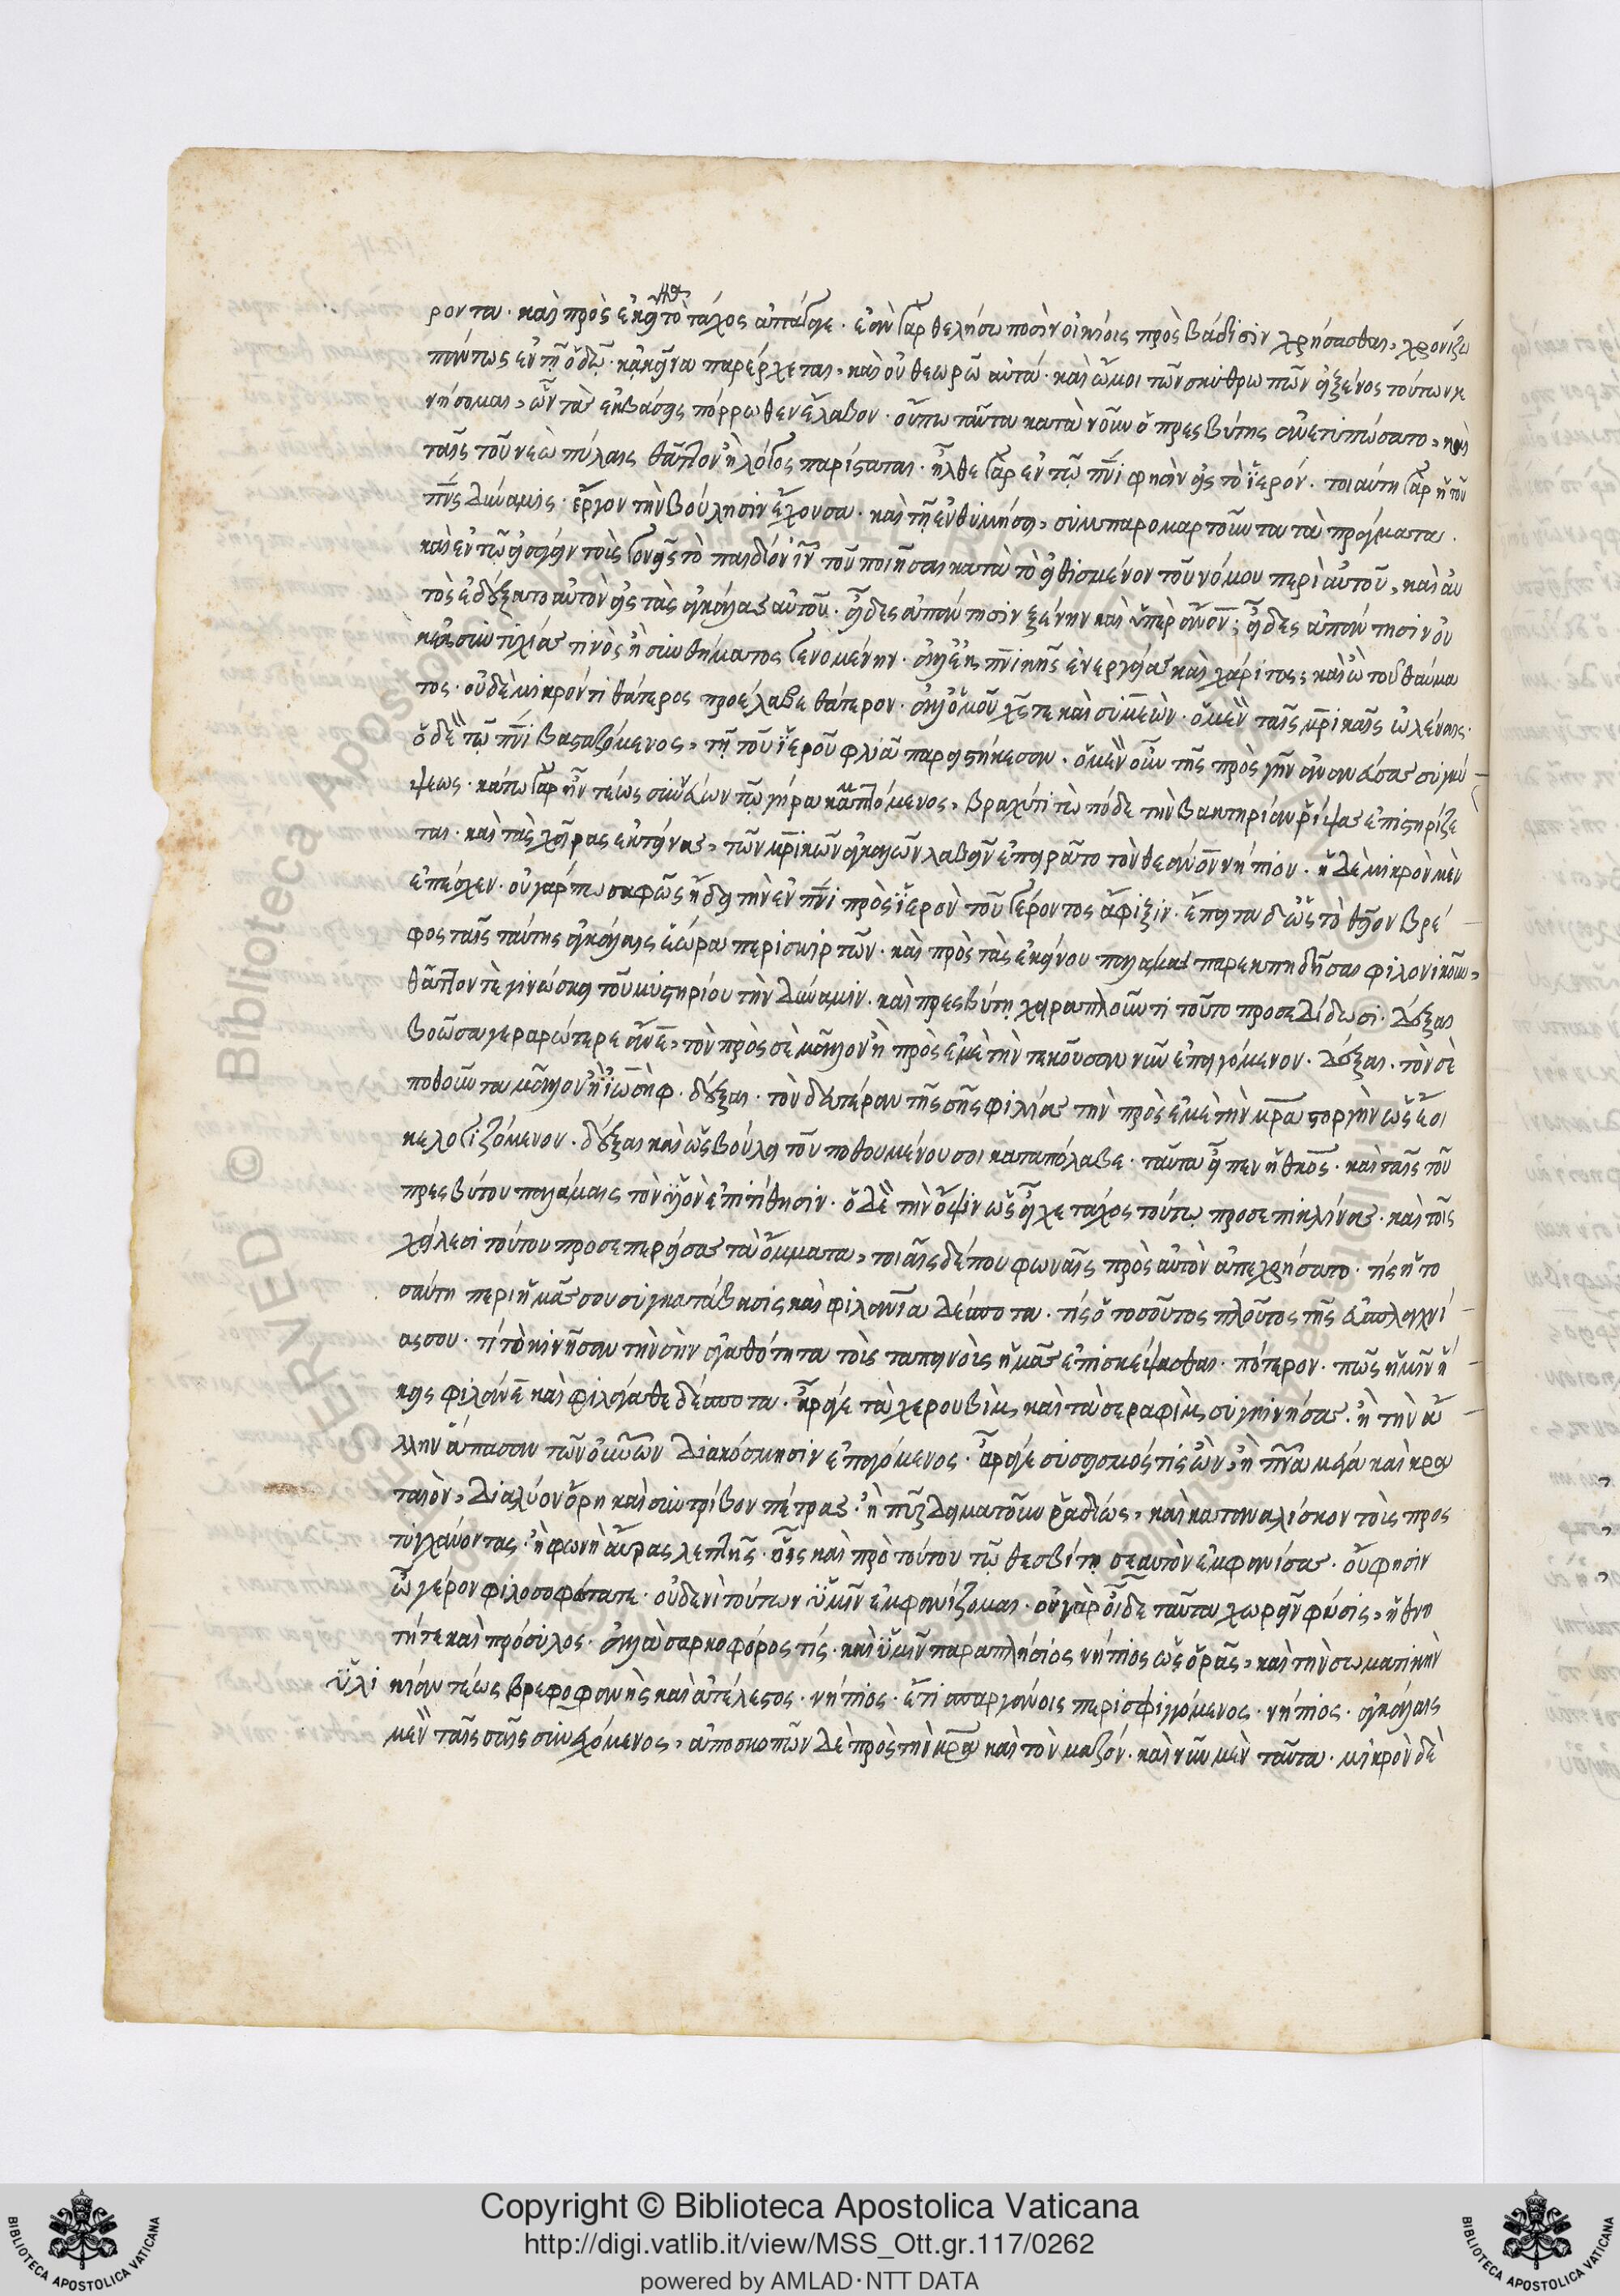 ροντα · καὶ πρὸς ἐκεῖ τὸ τάχος ἀπάγαγε · ἐὰν γὰρ θελήσω ποσὶν οἰκείοις πρὸς βάδισιν χρήσασθαι, χρονίζω
πάντως ἐν τῇ ὁδῷ · κἀκεῖνα παρέρχεται, καὶ οὐ θεωρῶ αὐτά · καὶ ὤμοι τῶν σκυθρωπῶν εἰ ξένος τούτων κ
νήσομαι, ὧν τὰς ἐκβάσεις πόρρωθεν ἔλαβον · οὔπω ταῦτα κατὰ νοῦν ὁ πρεσβύτης ἀνετυπώσατο, καὶ
ταῖς τοῦ νεὼ πύλαις θᾶττον ἢ λόγος παρίσταται · ἦλθε γὰρ ἐν τῷ πνι φησὶν εἰς τὸ ἱερόν · τοιαύτη γὰρ ἡ τοῦ
πνς δύναμις · ἔργον τὴν βούλησιν ἔχουσα · καὶ τῇ ἐνθυμήσει, συμπαρομαρτοῦντα τὰ πράγματα ·
καὶ ἐν τῷ εἰσαγαγεῖν τοὺς γονεῖς τὸ παιδίον ιν τοῦ ποιῆσαι κατὰ τὸ εἰθισμένον τοῦ νόμου περὶ αὐτοῦ, καὶ αὐ
τὸς ἐδέξατο αὐτὸν εἰς τὰς ἀγκάλας αὐτοῦ · εἶδες ἀπάντησιν ξένην καὶ ὑπὲρ ανον; εἶδες ἀπάντησιν οὐ
κ ἐκ συντυχίας τινὸς ἢ συνθήματος γενομένην · ἀλλ' ἐκ πνικῆς ἐνεργείας καὶ χάριτος; καὶ ὢ τοῦ θαύμα
τος · οὐδὲ μικρόν τι θάτερος προέλαβε θάτερον · ἀλλ' ὁμοῦ χς τε καὶ συμεὼν · ὁ μὲν ταῖς μρικαῖς ὠλέναις ·
ὁ δὲ τῷ πνι βασταζόμενος, τῇ τοῦ ἱεροῦ φλιᾷ παρειστήκεσαν · ὁ μὲν οὖν τῆς πρὸς γῆν ἀνανεύσας συγκύ
ψεως · κάτω γὰρ ἦν τέως συννεύων τῷ γήρᾳ καμπτόμενος, βραχύ τι τὼ πόδε τὴν βακτηρίαν ῥίψας ἐπιστηρίζε
ται · καὶ τὰς χεῖρας ἐκτείνας, τῶν μρικῶν ἀγκαλῶν λαβεῖν ἐπειρᾶτο τὸν θεανον νήπιον · ἡ δὲ μικρὸν μὲν
ἐπέσχεν · οὐ γάρ πω σαφῶς ᾔδει τὴν ἐν πνι πρὸς ἱερὸν τοῦ γέροντος ἄφιξιν · ἔπειτα δ' ὡς τὸ θεῖον βρέ
φος ταῖς ταύτης ἀγκάλαις ἑώρα περισκιρτῶν · καὶ πρὸς τὰς ἐκείνου παλάμας παρεκπηδῆσαι φιλονικοῦν,
θᾶττόν τε γινώσκει τοῦ μυστηρίου τὴν δύναμιν · καὶ πρεσβύτῃ χειραπλοῦντι τοῦτο προσεδίδωσι · δέξαι
βοῶσα γεραρώτερε ανε, τὸν πρὸς σὲ μᾶλλον ἢ πρὸς ἐμὲ τὴν τεκοῦσαν νῦν ἐπειγόμενον · δέξαι · τὸν σὲ
ποθοῦντα μᾶλλον ἢ ἰωσὴφ · δέξαι · τὸν δευτέραν τῆς σῆς φιλίας τὴν πρὸς ἐμὲ τὴν μρα στοργὴν ὡς ἔοι
κε λογιζόμενον · δέξαι καὶ ὡς βούλει τοῦ ποθουμένου σοι καταπόλαβε · ταῦτα εἶπεν ἡ θκος · καὶ ταῖς τοῦ
πρεσβύτου παλάμαις τὸν υἱὸν ἐπιτίθησιν · ὁ δὲ τὴν ὄψιν ὡς εἶχε τάχος τούτῳ προσεπικλίνας · καὶ τοῖς
χείλεσι τούτου προσεπερείσας τὰ ὄμματα, τοιαῖσδέ που φωναῖς πρὸς αὐτὸν ἀπεχρήσατο · τίς ἡ το
σαύτη περὶ ἡμᾶς σου συγκατάβασις καὶ φιλανια δέσποτα · τίς ὁ τοσοῦτος πλοῦτος τῆς εὐσπλαγχνί
ας σου · τί τὸ κινῆσαν τὴν σὴν ἀγαθότητα τοὺς ταπεινοὺς ἡμᾶς ἐπισκέψασθαι · πότερον · πῶς ἡμῖν ἥ
κεις φιλάνε καὶ φιλάγαθε δέσποτα · ἆρά γε τὰ χερουβὶμ, καὶ τὰ σεραφὶμ συγκινήσας · ἢ τὴν ἄ
λλην ἅπασαν τῶν ουνων διακόσμησιν ἐπαγόμενος · ἆρά γε συσσεισμός τις ὢν, ἢ πνα μέγα καὶ κρα
ταιὸν, διαλύον ὄρη καὶ συντρίβον πέτρας · ἢ πῦρ δειματοῦν ῥᾳδίως, καὶ καταναλίσκον τοὺς προς
τυγχάνοντας · ἢ φωνὴ αὔρας λεπτῆς · οἷς καὶ πρὸ τούτου τῷ θεσβίτῃ σεαυτὸν ἐμφανίσας · οὔ φησιν
ὦ γέρον φιλοσοφώτατε · οὐδενὶ τούτων ὑμῖν ἐμφανίζομαι · οὐ γὰρ οἶδε ταῦτα χωρεῖν φύσις, ἡ θνη
τή τε καὶ πρόσυλος · ἀλλὰ σαρκοφόρος τίς · καὶ ὑμῖν παραπλήσιος νήπιος ὡς ὁρᾷς, καὶ τὴν σωματικὴν
ὑλι κίαν τέως βρεφοφανὴς καὶ ἀτέλεστος · νήπιος · ἔτι σπαργάνοις περισφιγγόμενος · νήπιος · ἀγκάλαις
μὲν ταῖς σαῖς συνεχόμενος, ἀποσκοπῶν δὲ πρὸς τὴν μρα καὶ τὸν μαζόν · καὶ νῦν μὲν ταῦτα · μικρὸν δὲ